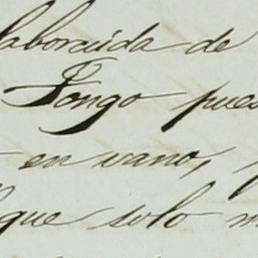 laborcuida de
Pongo pues
en vano,
que solo m